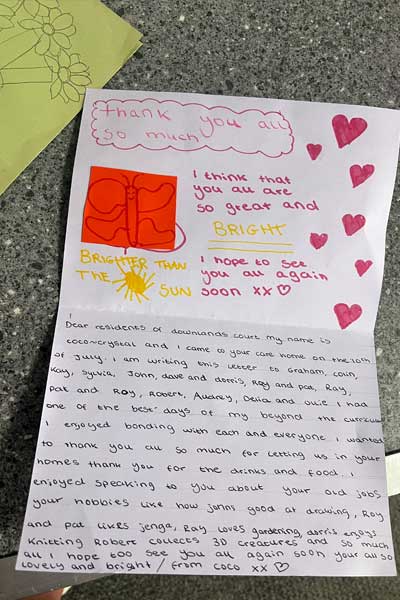 thank you all
so much
I think that
you all are
so great and
BRIGHT
BRIGHTER THAN
THE SUN
I hope to see
you all again
soon xx ♡
Dear residents of downlands court my name is
coco-crystal and I came to your care home on the 10th
of July. I am writing this letter to Graham, Colin,
Kay, Sylvia, John, dave and dorris, Roy and pat, Ray,
Pat and Roy, Robert, Audrey, Delia and Julie I had
one of the best days of my beyond the curriculum
I enjoyed bonding with each and everyone I wanted
to thank you all so much for letting us in your
homes thank you for the drinks and food I
enjoyed speaking to you about your old jobs
your hobbies like how johns good at drawing, Roy
and pat likes jenga, Ray loves gardening, dorris enjoys
Knitting Robert collects 3D creatures and so much
all I hope too see you all again soon your all so
lovely and bright / from coco xx ♡